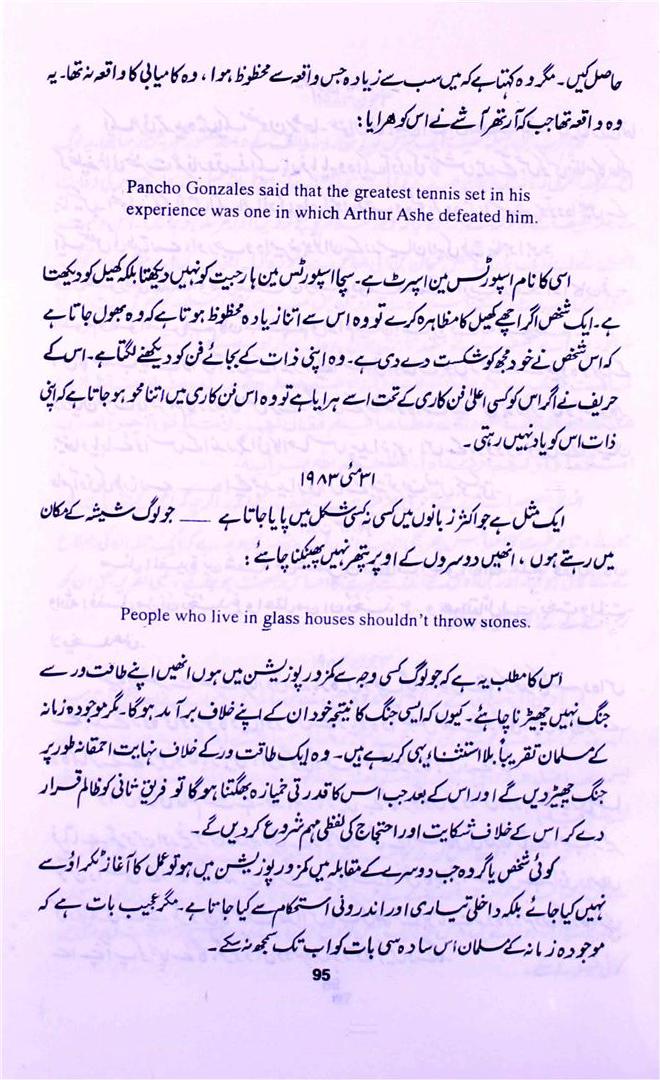 حاصل کیں۔ مگر وہ کہتا ہے کہ میں سب سے زیادہ جس واقعہ سے محظوظ ہوا، وہ کامیابی کا واقعہ نہ تھا۔ یہ
وہ واقعہ تھا جب کہ آرتھر آشے نے اس کو ہرایا:
Pancho Gonzales said that the greatest tennis set in his
experience was one in which Arthur Ashe defeated him.
اسی کا نام اسپورٹس مین اسپرٹ ہے۔ سچا اسپورٹس مین ہار جیت کو نہیں دیکھتا بلکہ کھیل کو دیکھتا
ہے۔ ایک شخص اگر اچھے کھیل کا مظاہرہ کرے تو وہ اس سے اتنا زیادہ محظوظ ہوتا ہے کہ وہ بھول جاتا ہے
کہ اس شخص نے خود مجھ کو شکست دے دی ہے۔ وہ اپنی ذات کے بجائے فن کو دیکھنے لگتا ہے۔ اس کے
حریف نے اگر اس کو کسی اعلیٰ فن کاری کے تحت اسے ہرایا ہے تو وہ اس فن کاری میں اتنا محو ہو جاتا ہے کہ اپنی
ذات اس کو یاد نہیں رہتی۔
۳۱ مئی ۱۹۸۳
ایک مثل ہے جو اکثر زبانوں میں کسی نہ کسی شکل میں پایا جاتا ہے ــــ جو لوگ شیشہ کے مکان
میں رہتے ہوں، انھیں دوسروں کے اوپر پتھر نہیں پھینکنا چاہئے:
People who live in glass houses shouldn't throw stones.
اس کا مطلب یہ ہے کہ جو لوگ کسی وجہ سے کمزور پوزیشن میں ہوں انھیں اپنے طاقت ور سے
جنگ نہیں چھیڑنا چاہئے۔ کیوں کہ ایسی جنگ کا نتیجہ خود ان کے اپنے خلاف برآمد ہوگا۔ مگر موجودہ زمانہ
کے مسلمان تقریباً بلا استثناء یہی کر رہے ہیں۔ وہ ایک طاقت ور کے خلاف نہایت احمقانہ طور پر
جنگ چھیڑ دیں گے اور اس کے بعد جب اس کا قدرتی خمیازہ بھگتنا ہوگا تو فریق ثانی کو ظالم قرار
دے کر اس کے خلاف شکایت اور احتجاج کی لفظی مہم شروع کر دیں گے۔
کوئی شخص یا گروہ جب دوسرے کے مقابلہ میں کمزور پوزیشن میں ہو تو عمل کا آغاز ٹکراؤ سے
نہیں کیا جائے بلکہ داخلی تیاری اور اندرونی استحکام سے کیا جاتا ہے۔ مگر عجیب بات ہے کہ
موجودہ زمانہ کے مسلمان اس سادہ سی بات کو اب تک سمجھ نہ سکے۔
95